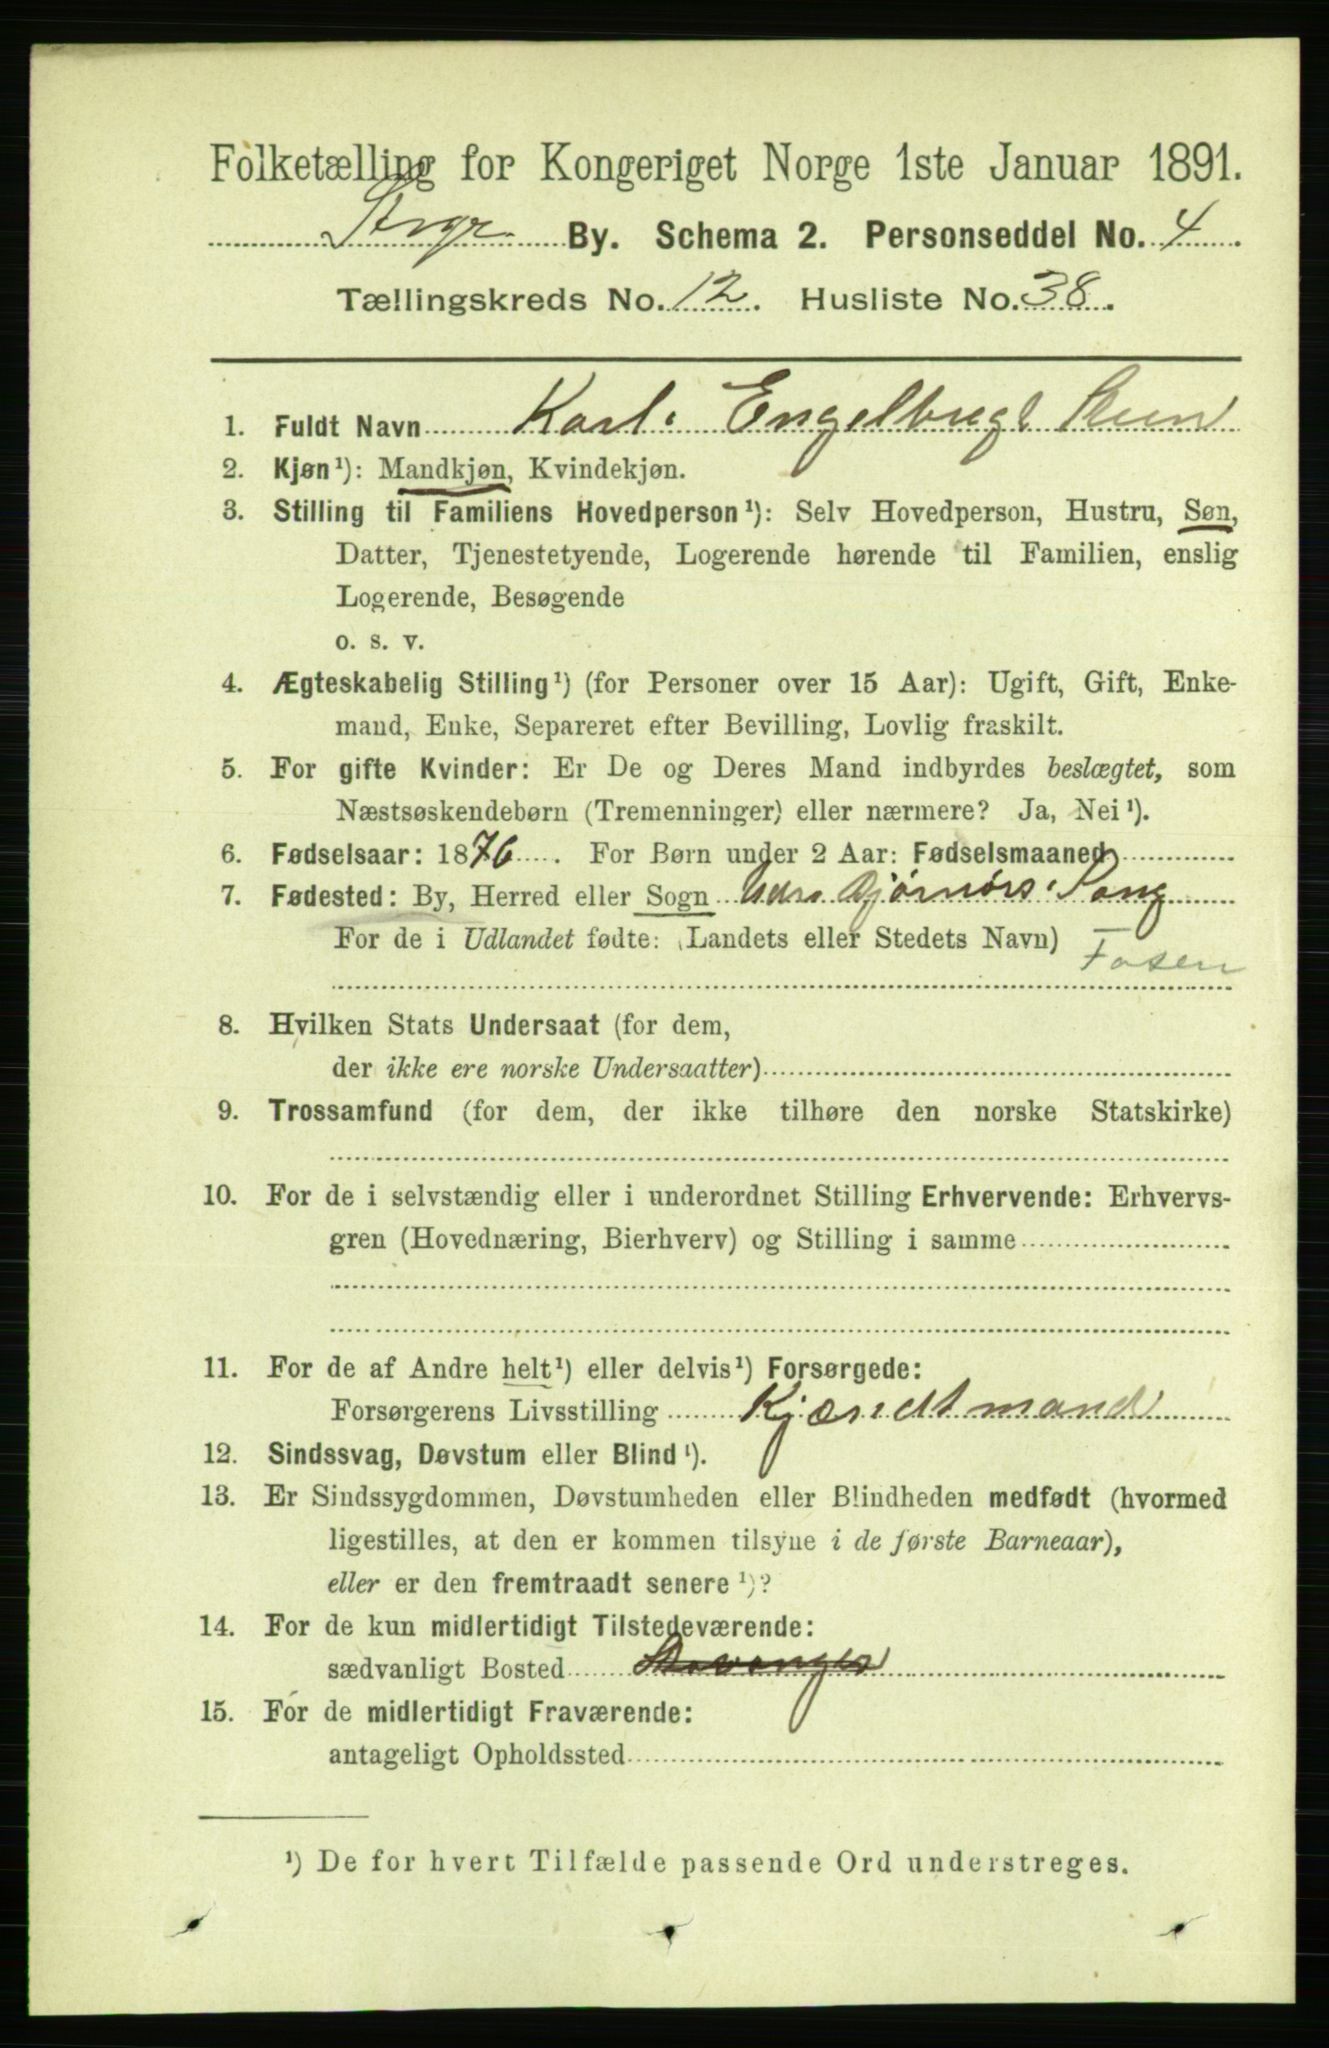 Folketælling for Kongeriget Norge 1ste Januar 1891.
By. Schema 2. Personseddel No. 4.
Tællingskreds No. 12. Husliste No. 38.
1. Fuldt Navn Karl Engelbregt
2. Kjøn¹): Mandkjøn, Kvindekjøn.
3. Stilling til Familiens Hovedperson¹): Selv Hovedperson, Hustru, Søn,
Datter, Tjenestetyende, Logerende hørende til Familien, enslig
Logerende, Besøgende
o. s. v.
4. Ægteskabelig Stilling¹) (for Personer over 15 Aar): Ugift, Gift, Enke-
mand, Enke, Separeret efter Bevilling, Lovlig fraskilt.
5. For gifte Kvinder: Er De og Deres Mand indbyrdes beslægtet, som
Næstsøskendebørn (Tremenninger) eller nærmere? Ja, Nei¹).
6. Fødselsaar: 1876. For Børn under 2 Aar: Fødselsmaaned
7. Fødested: By, Herred eller Sogn Bjørnørs
For de i Udlandet fødte: (Landets eller Stedets Navn) Fosen
8. Hvilken Stats Undersaat (for dem,
der ikke ere norske Undersaatter)
9. Trossamfund (for dem, der ikke tilhøre den norske Statskirke)
10. For de i selvstændig eller i underordnet Stilling Erhvervende: Erhvervs-
gren (Hovednæring, Bierhverv) og Stilling i samme
11. For de af Andre helt¹) eller delvis¹) Forsørgede:
Forsørgerens Livsstilling Kjændtmand
12. Sindssvag, Døvstum eller Blind¹).
13. Er Sindssygdommen, Døvstumheden eller Blindheden medfødt (hvormed
ligestilles, at den er kommen tilsyne i de første Barneaar),
eller er den fremtraadt senere¹)?
14. For de kun midlertidigt Tilstedeværende:
sædvanligt Bosted Stavanger
15. For de midlertidigt Fraværende:
antageligt Opholdssted
¹) De for hvert Tilfælde passende Ord understreges.